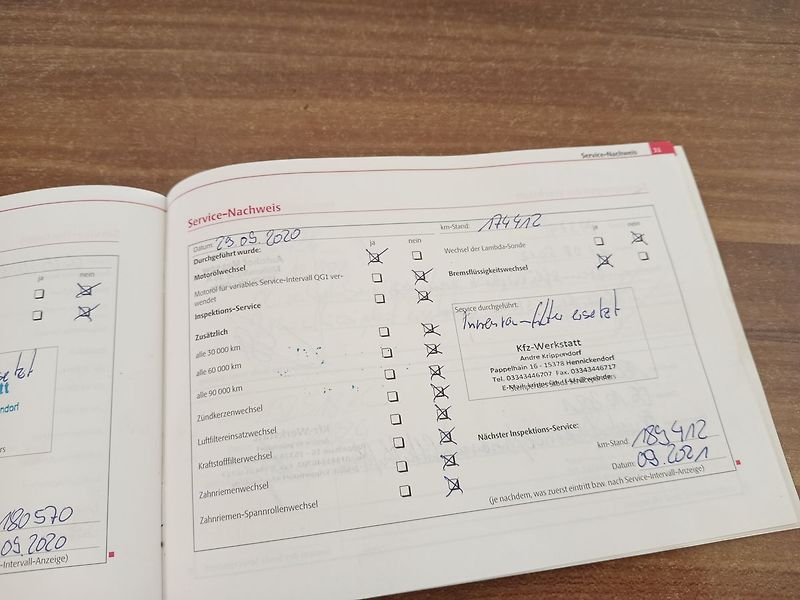 Service-Nachweis 31
Service-Nachweis
Datum: 29.09.2020 km-Stand: 174412
Durchgeführt wurde: ja nein ja nein
Motorölwechsel Wechsel der Lambda-Sonde
Motoröl für variables Service-Intervall QG1 ver-
wendet Bremsflüssigkeitswechsel
Inspektions-Service
Zusätzlich
alle 30 000 km
alle 60 000 km
alle 90 000 km
Zündkerzenwechsel
Luftfiltereinsatzwechsel
Kraftstofffilterwechsel
Zahnriemenwechsel
Zahnriemen-Spannrollenwechsel
Service durchgeführt:
Innenraumfilter ersetzt
Kfz-Werkstatt
Andre Krippendorf
Pappelhain 16 - 15378 Hennickendorf
Tel. 03343446707 Fax. 03343446717
Nächster Inspektions-Service:
km-Stand: 189412
Datum: 09.2021
(je nachdem, was zuerst eintritt bzw. nach Service-Intervall-Anzeige)
ja nein
180570
09.2020
-Intervall-Anzeige)